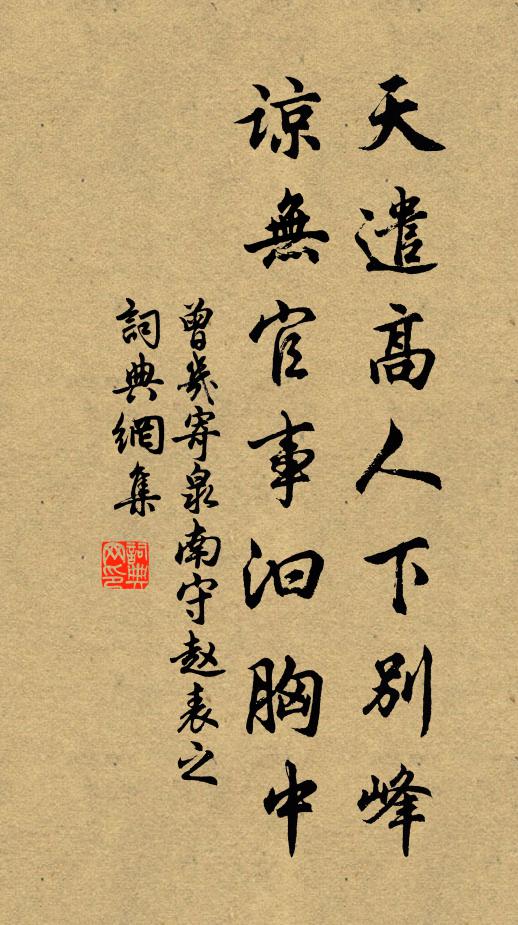 天遣高人下别峰
諒無官事汩胸中
曾幾寄泉南守赵表之
詞典網集
詞典網印